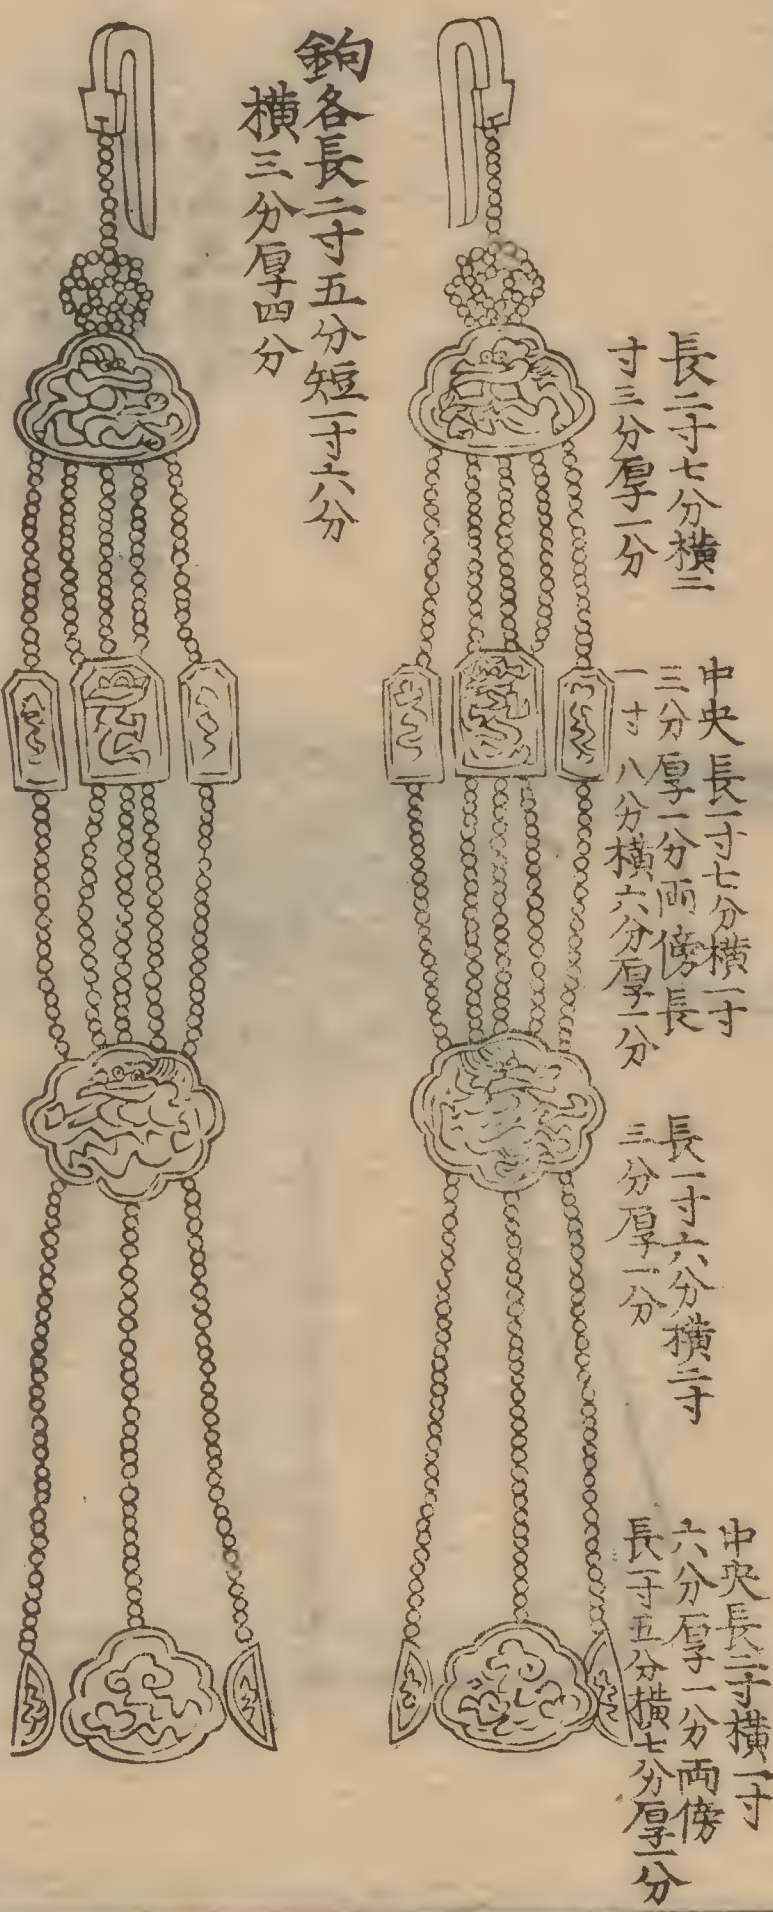 長二寸七分横二
寸三分厚一分
中央長一寸七分横一寸
三分厚一分両傍長
一寸八分横六分厚一分
長一寸六分横二寸
三分厚一分
中央長二寸横一寸
六分厚一分両傍
長一寸五分横七分厚一分
鉤各長二寸五分短一寸六分
横三分厚四分